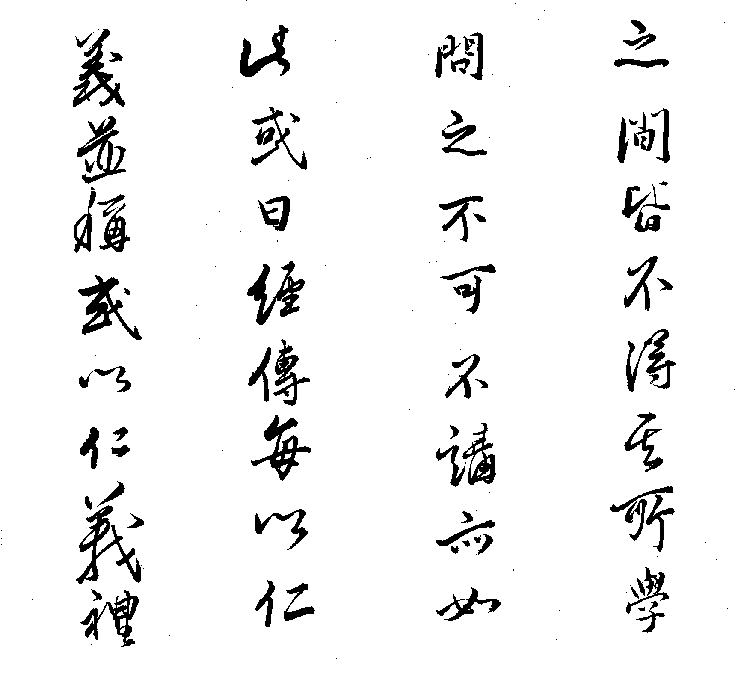 之間皆不得其所學
問之不可不講亦如
此或曰經傳每以仁
義並稱或以仁義禮